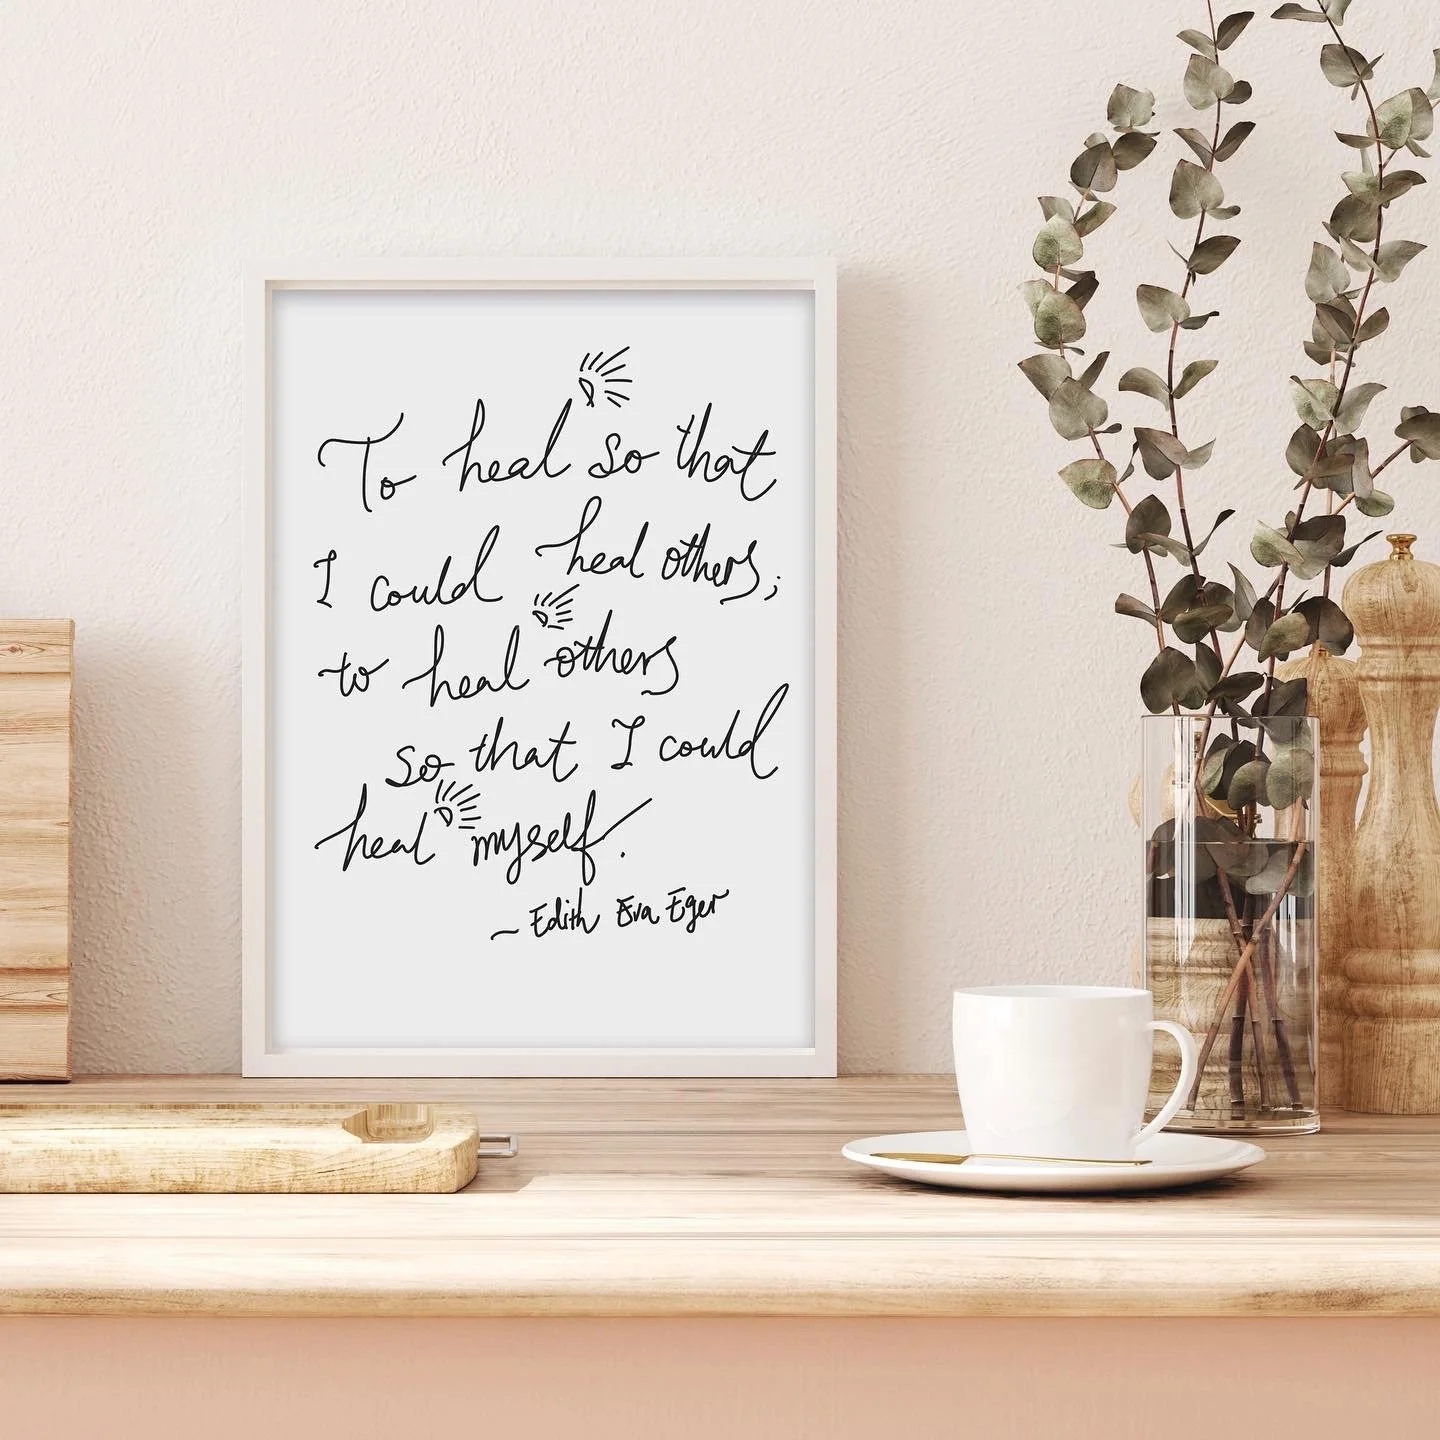 To heal so that
I could heal others;
to heal others
so that I could
heal myself.
~ Edith Eva Eger